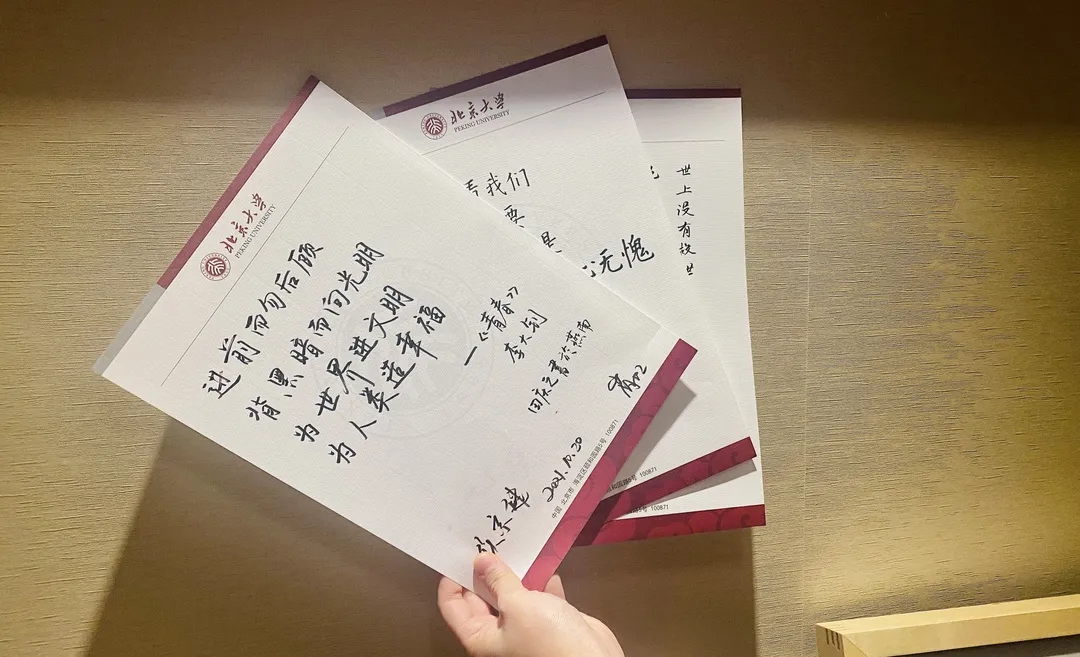 北京大学
PEKING UNIVERSITY
进前而勿后顾
背黑暗而向光明
为世界进文明
为人类造幸福
—《青春》
李大钊
田庆之书於燕南
2021.10.20
中国 北京市 海淀区颐和园路5号 100871
北京大学
PEKING UNIVERSITY
我们
要
无愧
颐和园路5号 100871
世
上
没
有
故
世
5号 100871